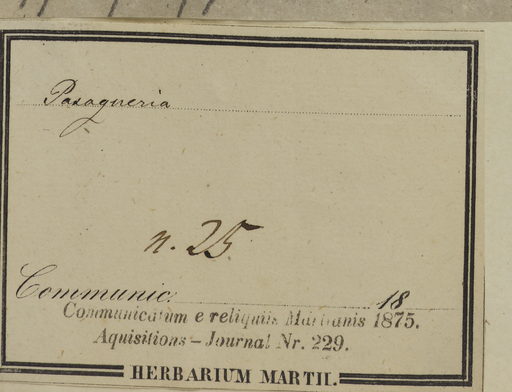 Pasagueria
n. 25
Communic. 18
Communicatum e reliquiis Martianis 1875.
Aquisitions – Journal Nr. 229.
HERBARIUM MARTII.